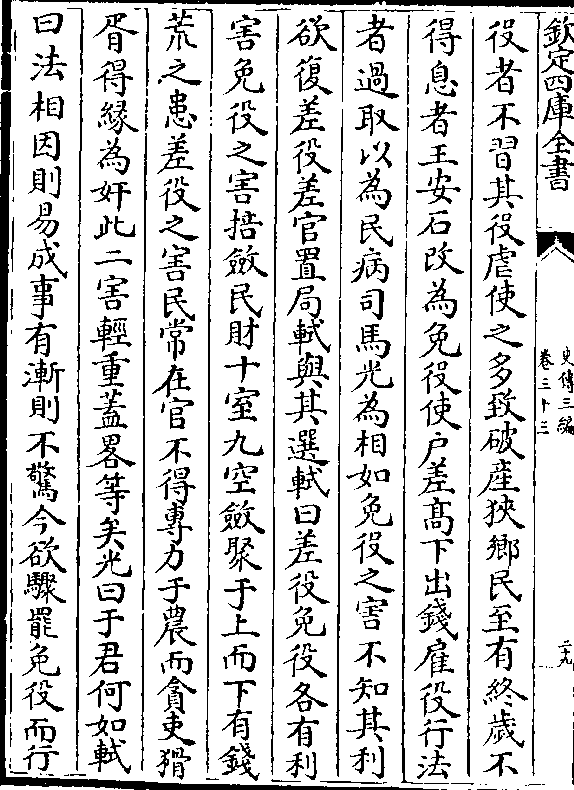 欽定四庫全書
史傳三編
卷三十三
二九
役者不習其役虐使之多致破產狹鄉民至有終歲不
得息者王安石改為免役使戶差髙下出錢雇役行法
者過取以為民病司馬光為相如免役之害不知其利
欲復差役差官置局軾與其選軾曰差役免役各有利
害免役之害掊斂民財十室九空斂聚于上而下有錢
荒之患差役之害民常在官不得專力于農而貪吏猾
胥得緣為奸此二害輕重蓋畧等矣光曰于君何如軾
曰法相因則易成事有漸則不驚今欲驟罷免役而行